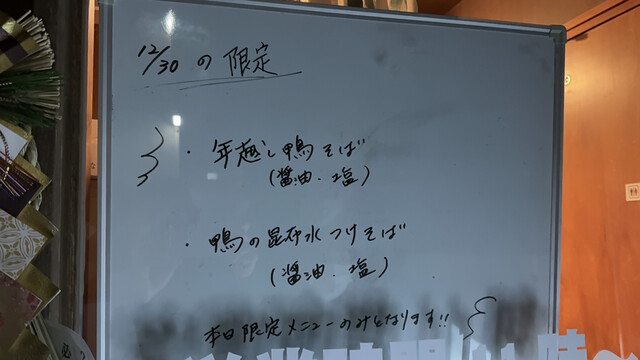 12/30 の 限定
・年越し鴨そば
(醤油・塩)
・鴨の昆布水つけそば
(醤油・塩)
本日限定メニューのみとなります!!